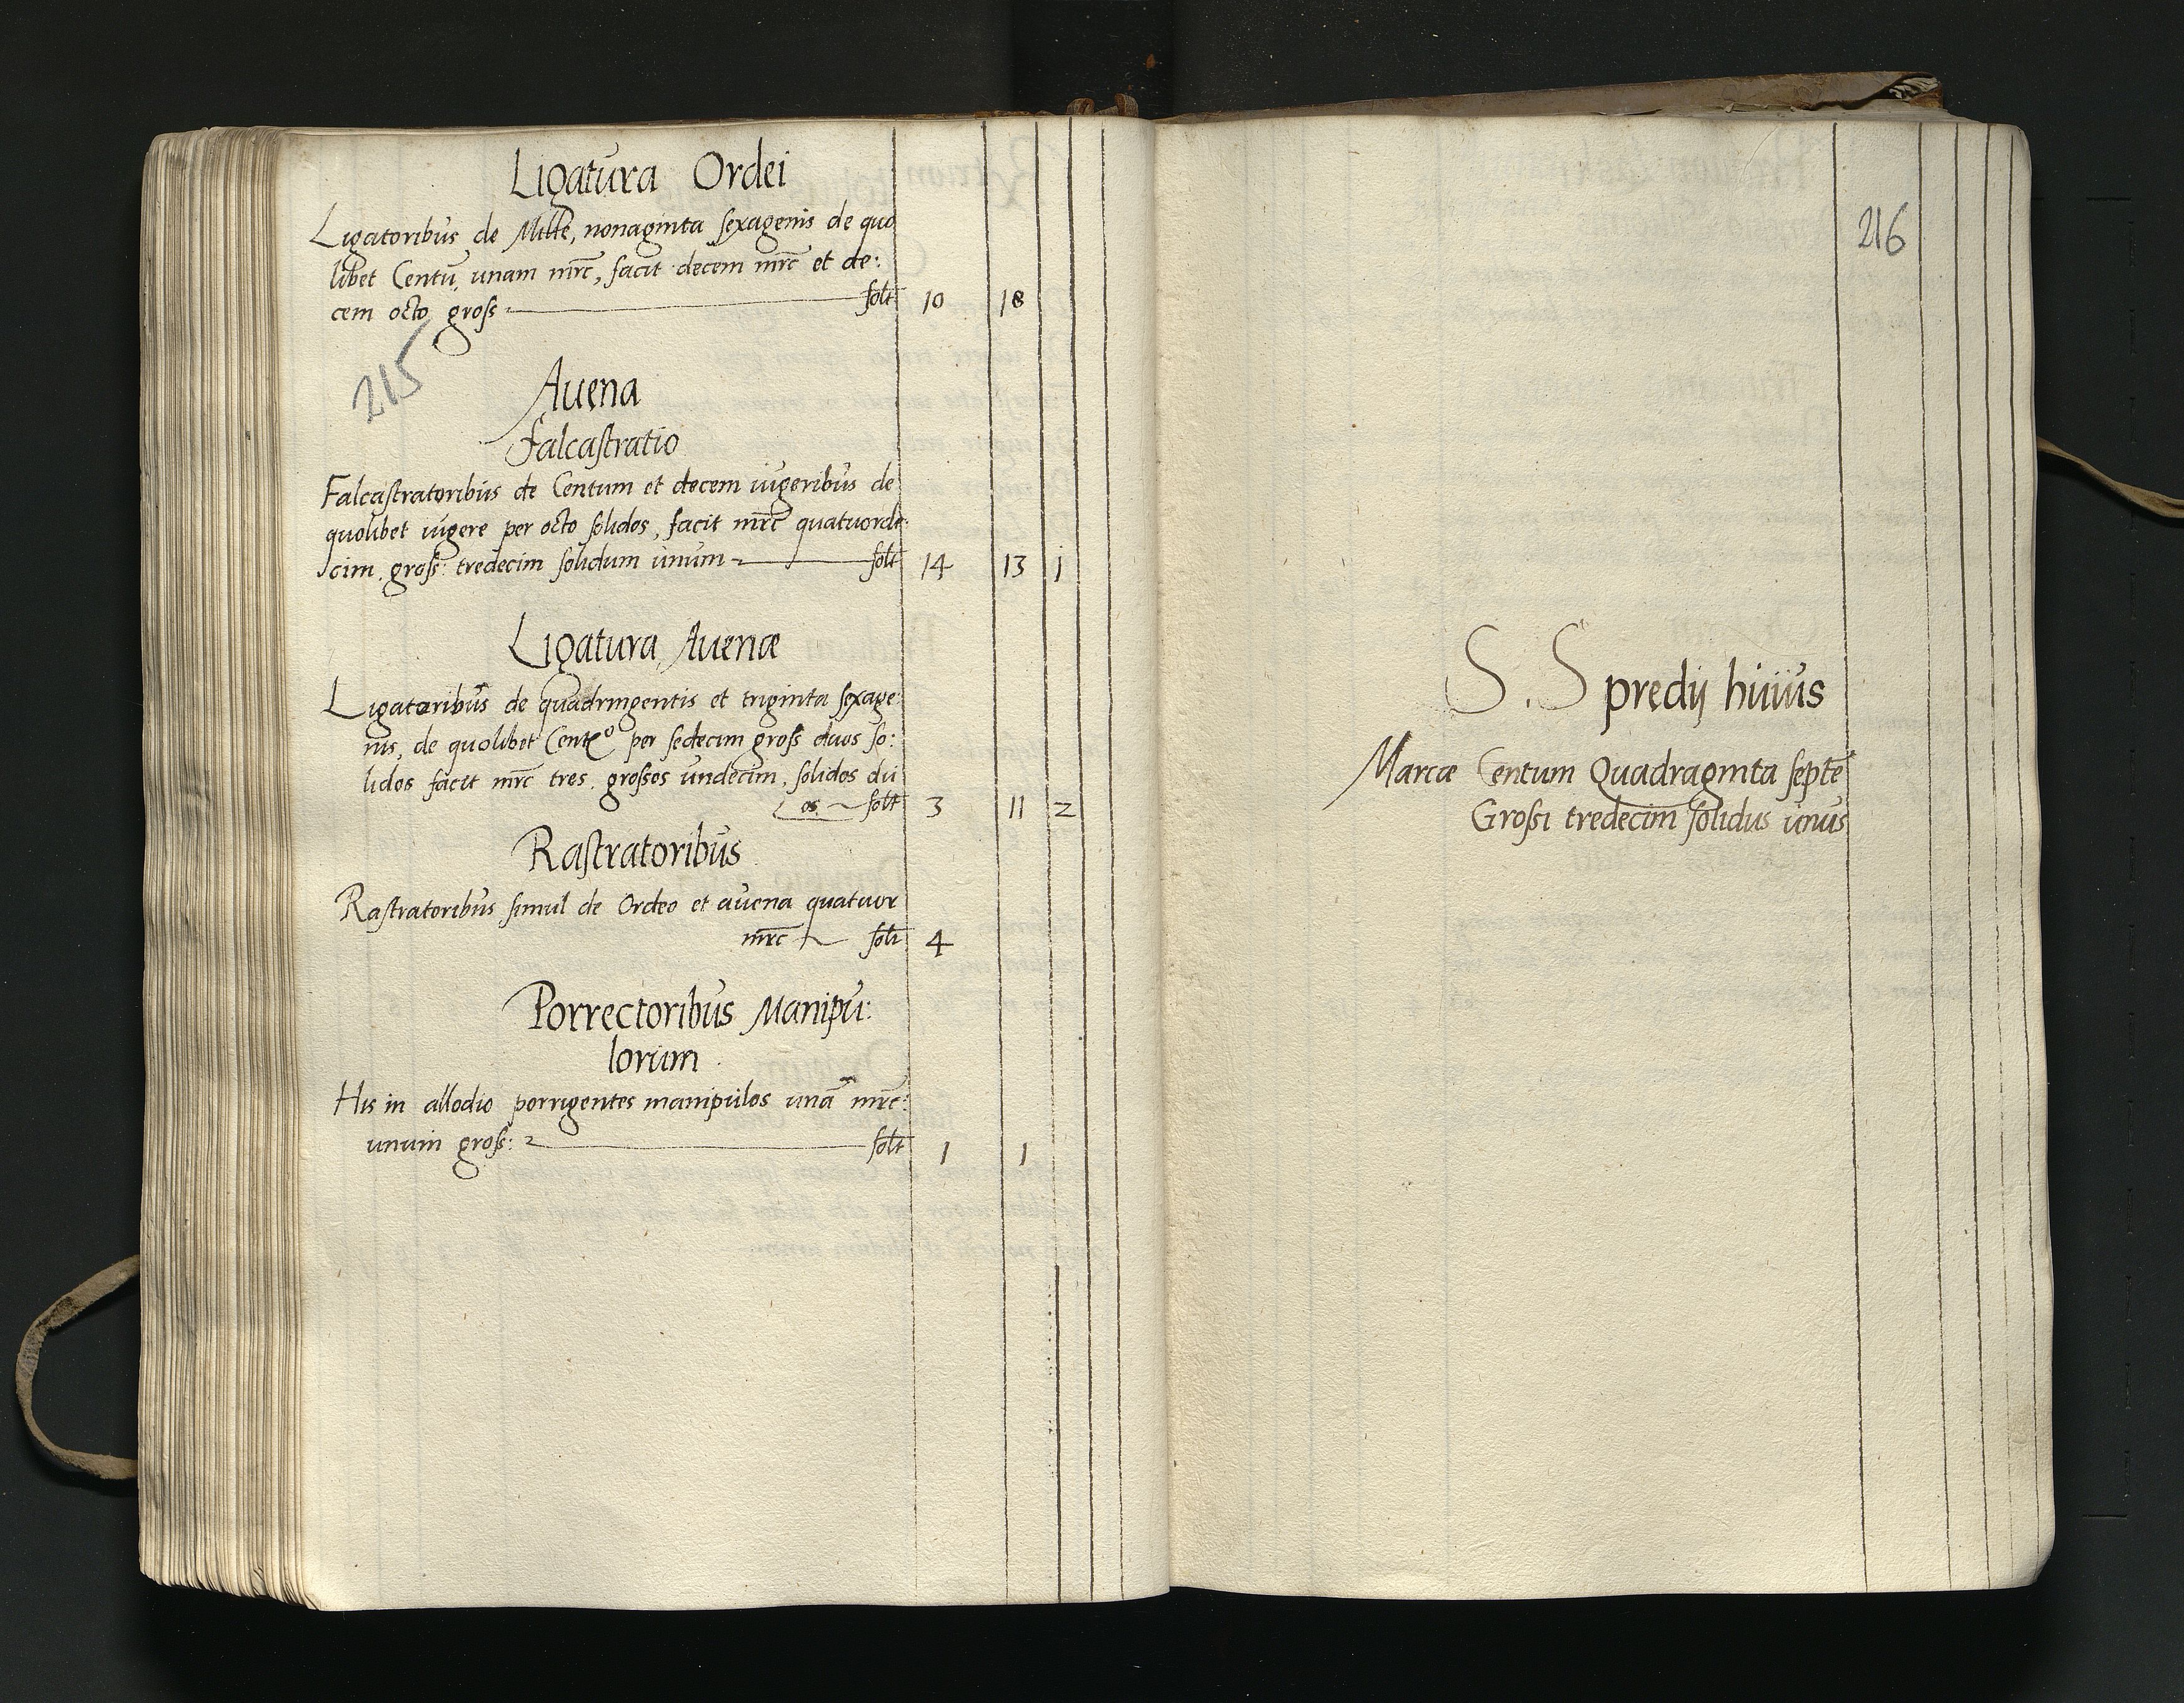 Ligatura Ordei
Ligatoribus de Mille, nonaginta sexagenis de quo
libet Centu, unam mrc, facit decem mrc et de:
cem octo gross solt 10 18
215
Auena
Falcastratio
Falcastratoribus de Centum et decem iugeribus de
quolibet iugere per octo solidos, facit mrc quatuorde:
cim. gross: tredecim solidum unum solt 14 13 1
Ligatura Auenæ
Ligatoribus de quadringentis et triginta sexage:
nis, de quolibet Centº per sedecim gross duos so:
lidos facit mrc tres. grossos undecim. solidos du
os. solt 3 11 2
Rastratoribus
Rastratoribus simul de Ordeo et auena quatuor
mrc solt 4
Porrectoribus Manipu:
lorum
His in allodio porrigentes manipulos unã mrc:
unum gross: solt 1 1
216
S. S predij huius
Marcæ Centum Quadraginta septē
Grossi tredecim solidus unus